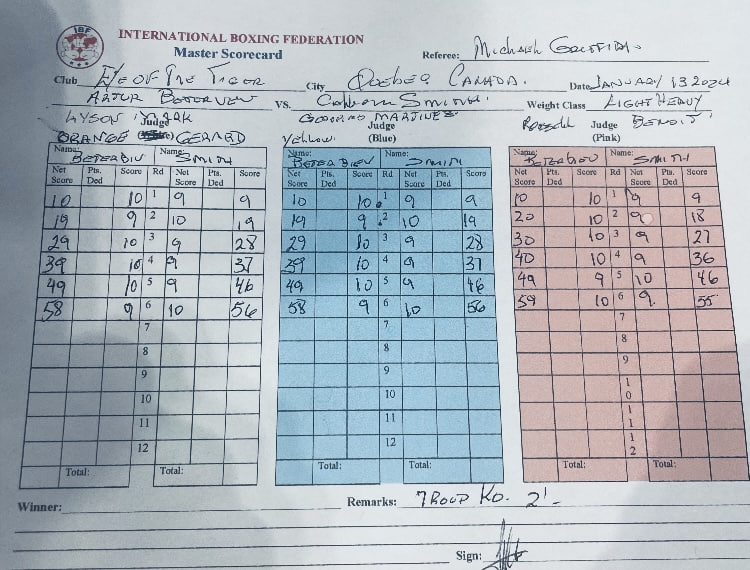 IBF
INTERNATIONAL BOXING FEDERATION
Master Scorecard
Referee: Michael GRIFFIN
Club EYE OF THE TIGER City QUEBEC CANADA. Date JANUARY 13 2024
ARTUR BETERVIEV VS. Callum SMITH. Weight Class LIGHT HEAVY
Judge Judge Judge BENOIT
ORANGE GERARD Yellow (Blue) (Pink)
Name: BETERBIV Name: SMITH Name: BETERBIEV Name: SMITH Name: BETERBIEV Name: SMITH
Net Score Pts. Ded Score Rd Net Score Pts. Ded Score Net Score Pts. Ded Score Rd Net Score Pts. Ded Score Net Score Pts. Ded Score Rd Net Score Pts. Ded Score
10 10 1 9 9 10 10 1 9 9 10 10 1 9 9
19 9 2 10 19 19 9 2 10 19 20 10 2 9 18
29 10 3 9 28 29 10 3 9 28 30 10 3 9 27
39 10 4 9 37 39 10 4 9 37 40 10 4 9 36
49 10 5 9 46 49 10 5 9 46 49 9 5 10 46
58 9 6 10 56 58 9 6 10 56 59 10 6 9 55
7 7 7
8 8 8
9 9 9
10 10 10
11 11 11
12 12 12
Total: Total: Total: Total: Total: Total:
Winner: Remarks: 7 ROUD KO. 2'-
Sign: